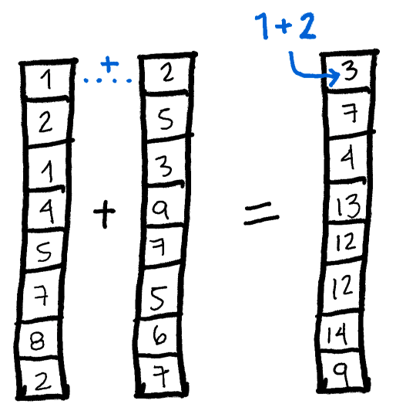 1+2
1 + 2 3
2 5 7
1 3 4
4 + 9 = 13
5 7 12
7 5 12
8 6 14
2 7 9